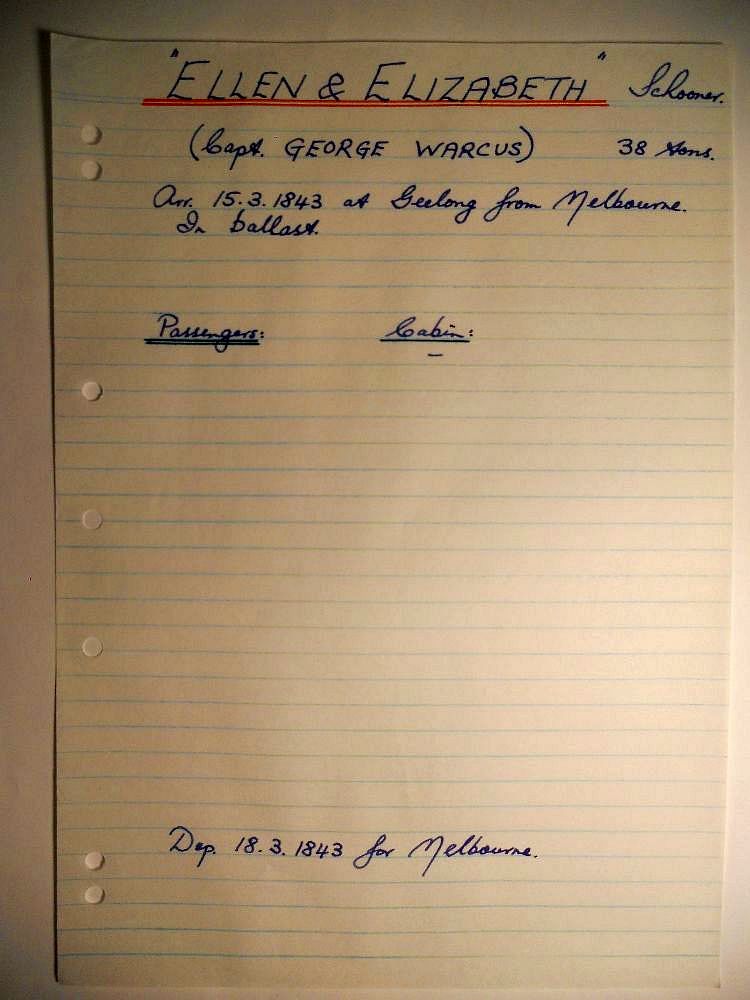 "ELLEN & ELIZABETH" Schooner.
(Capt. GEORGE WARCUS) 38 tons.
Arr. 15.3.1843 at Geelong from Melbourne.
In ballast.
Passengers: Cabin:
–
Dep. 18.3.1843 for Melbourne.